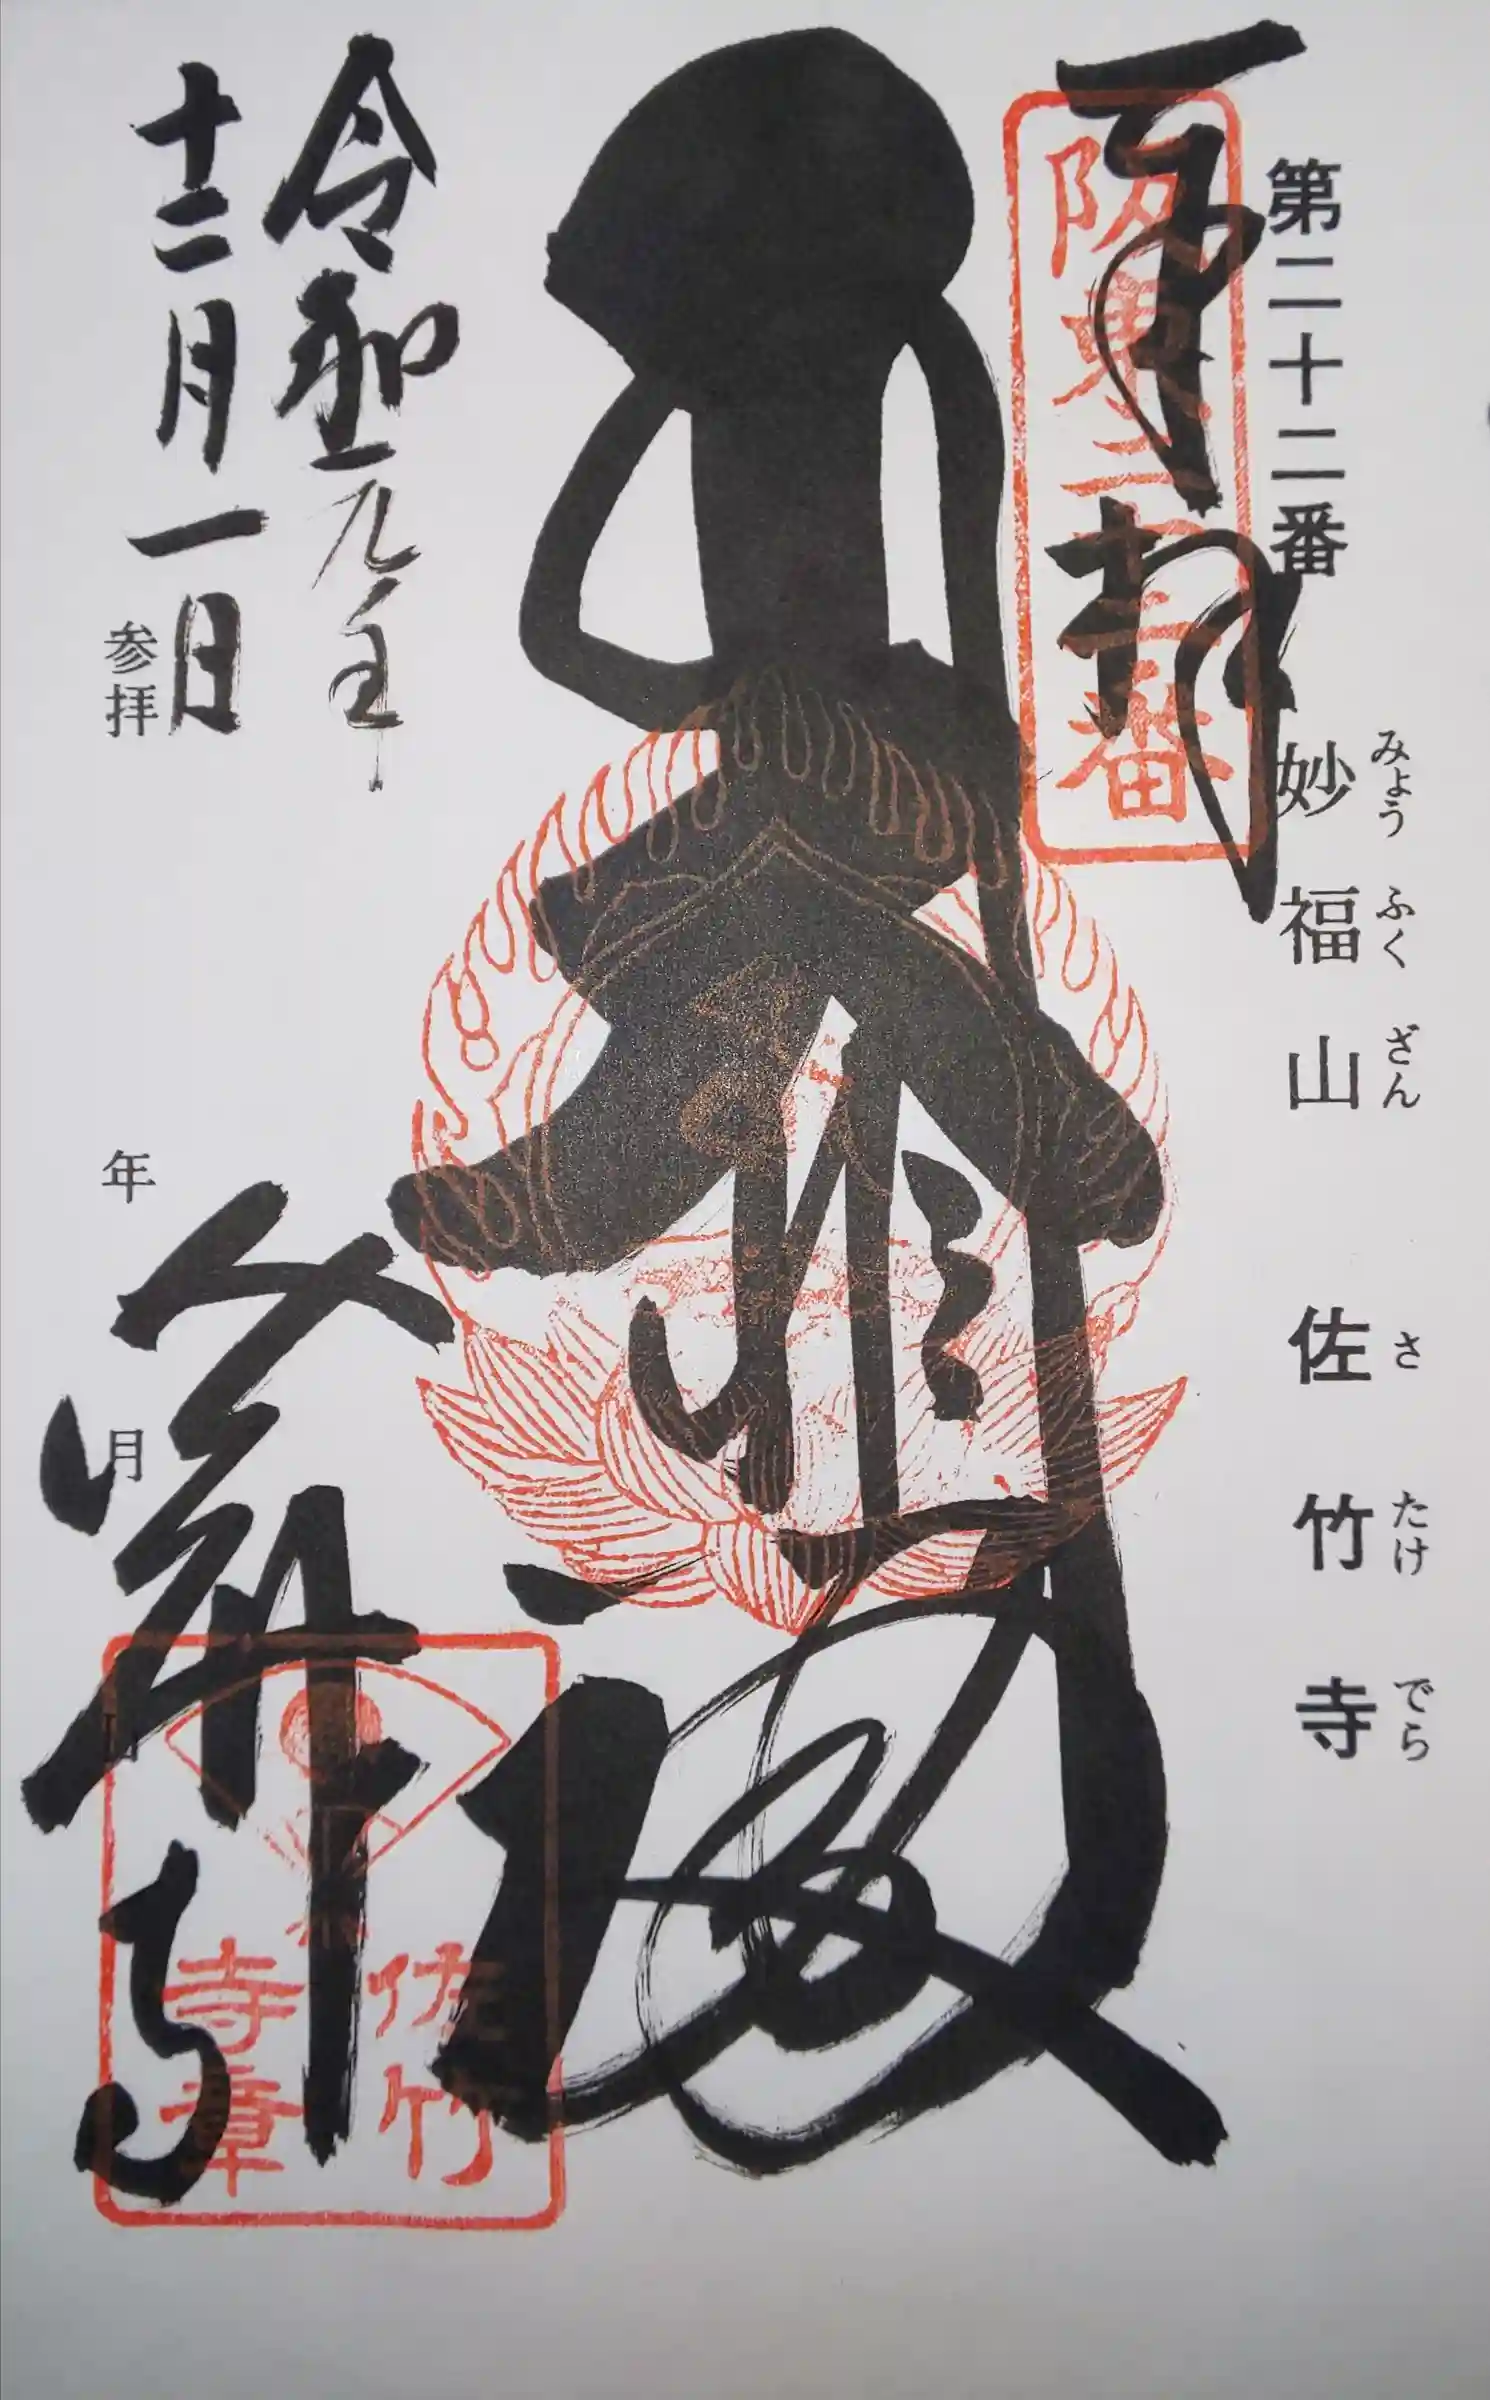 第二十二番 妙福山 佐竹寺
みょう ふく ざん さ たけ でら
奉拝
阪東二十二番
令和元年
十二月一日
参拝 年 月 日
佐竹
寺章